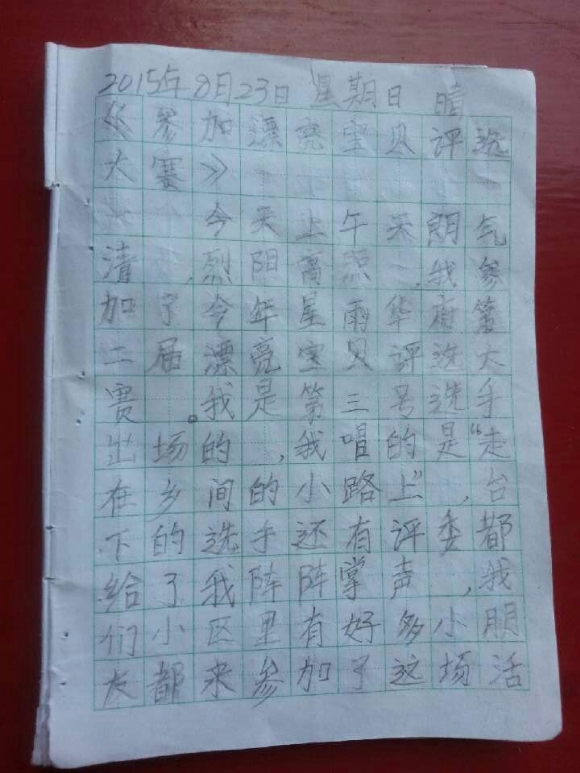 2015年8月23日 星期日 晴
《参加漂亮宝贝评选
大赛》
今天上午天朗气
清,烈阳高照,我参
加了今年星雨华府第
二届漂亮宝贝评选大
赛。我是第三号选手
出场的,我唱的是“走
在乡间的小路上”,台
下的选手还有评委都
给了我阵阵掌声,我
们小区里有好多小朋
友都来参加了这场活